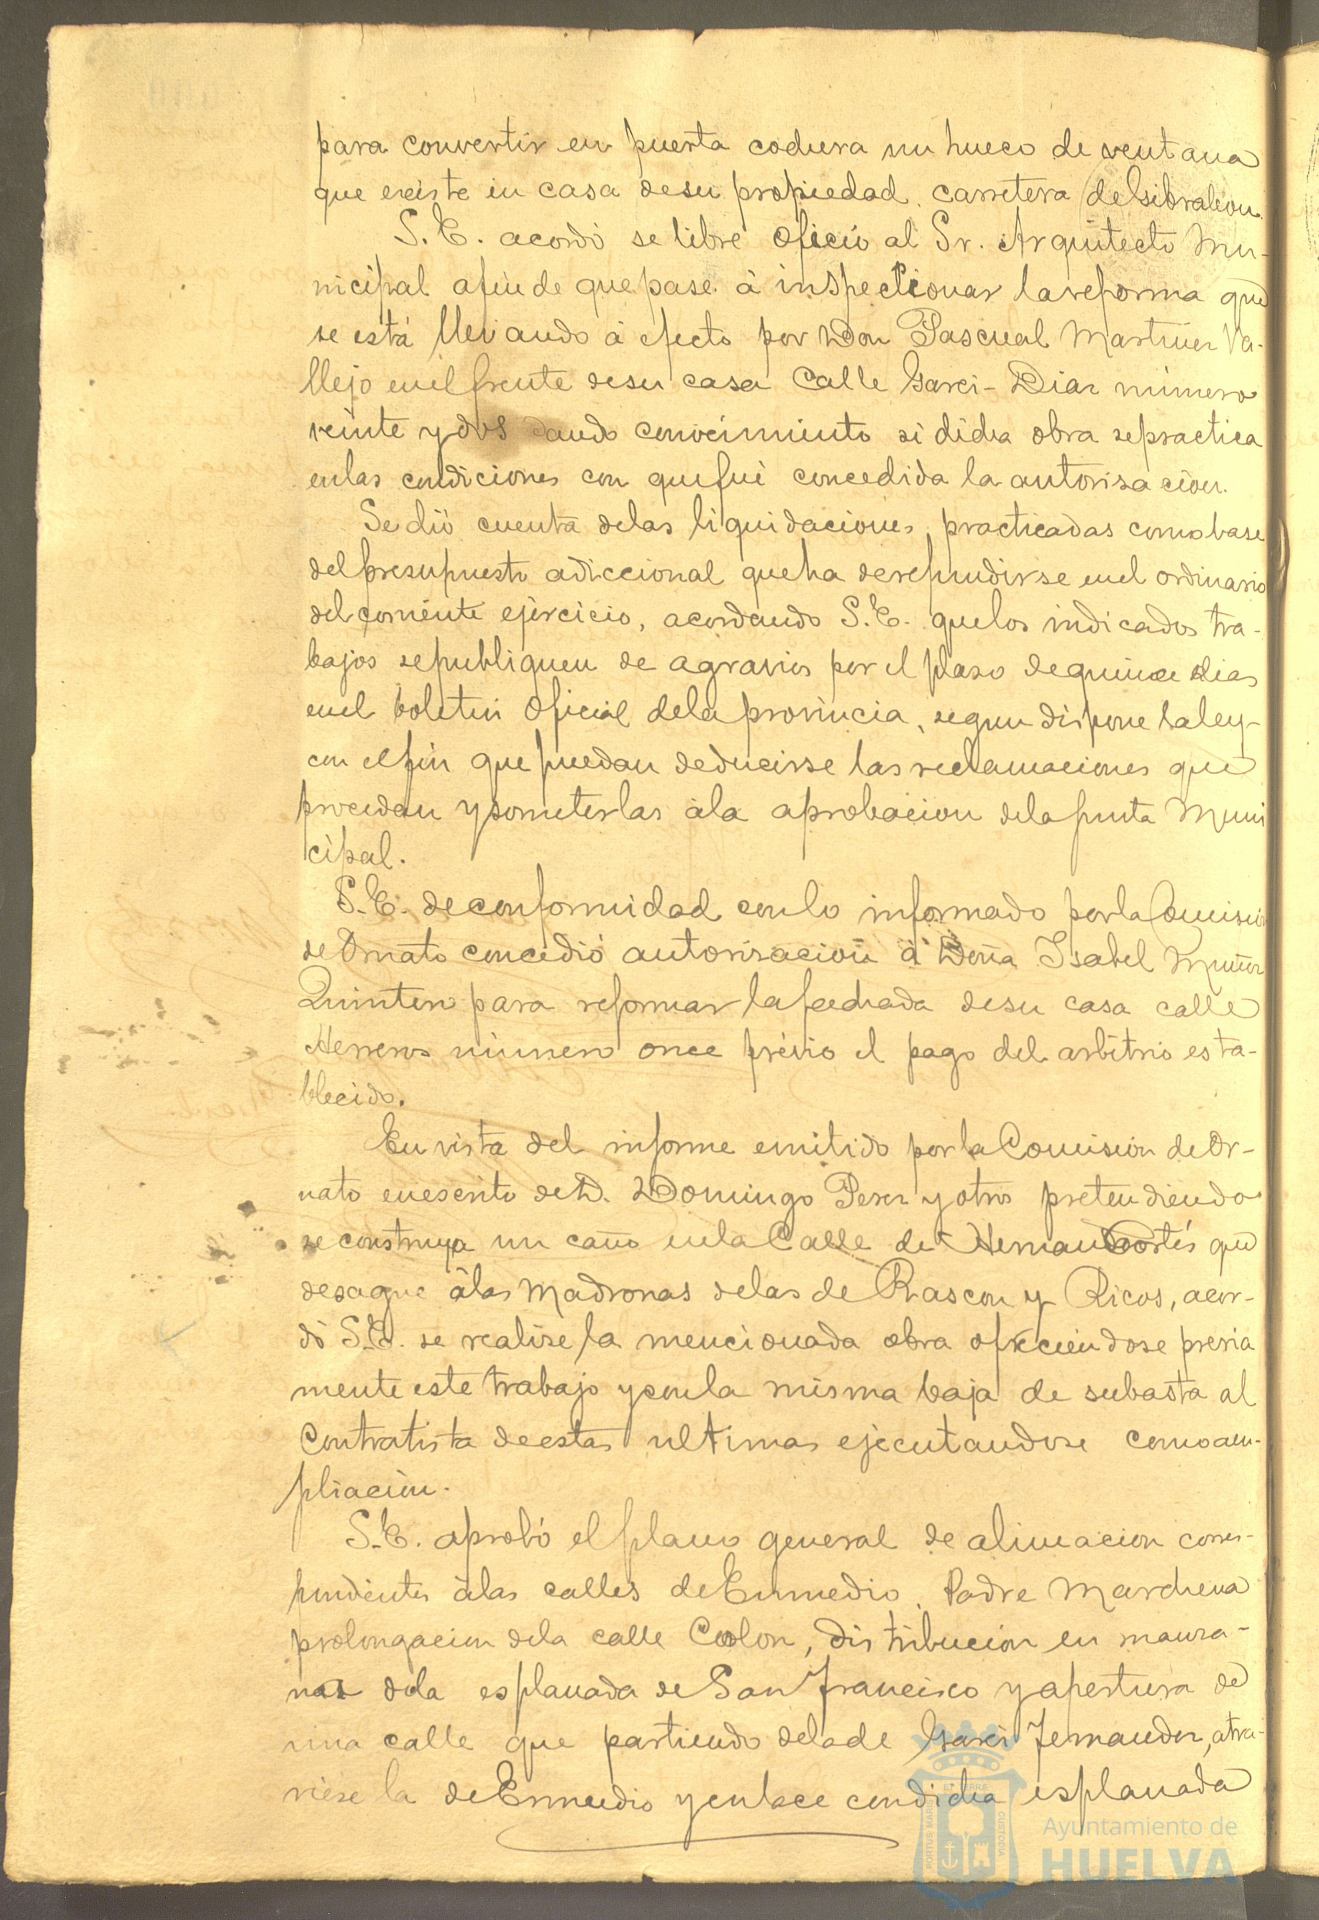 para convertir en puerta cochera un hueco de ventana
que existe en casa de su propiedad, carretera de Gibraleon.
S. E. acordó se libre oficio al Sr. Arquitecto Mu-
nicipal afin de que pase á inspeccionar la reforma que
se está llevando á efecto por Don Pascual Martinez Va-
llejo en el frente de su casa Calle Garci-Diaz número
veinte y dos dando conocimiento si dicha obra se practica
en las condiciones con que fué concedida la autorisacion.
Se dió cuenta de las liquidaciones practicadas como base
del presupuesto adiccional que ha de refundirse en el ordinario
del corriente ejercicio, acordando S. E. que los indicados tra-
bajos se publiquen de agravios por el plaso de quince dias
en el boletin Oficial de la provincia, segun dispone la ley
con el fin que puedan deducirse las reclamaciones que
procedan y someterlas á la aprobacion de la junta Muni
cipal.
S. E. de conformidad con lo informado por la Comision
de Ornato concedió autorisacion á Doña Isabel Muñoz
Quintero para reformar la fachada de su casa calle
Herreros número once prévio el pago del arbitrio esta-
blecido.
En vista del informe emitido por la Comision de Or-
nato en escrito de D. Domingo Perez y otros pretendiendo
se construya un caño en la Calle de Hernan Cortés que
desague á las madronas de las de Rascon y Ricos, acor-
dó S. E. se realise la mencionada obra ofreciendose previa
mente este trabajo y con la misma baja de subasta al
Contratista de estas ultimas ejecutandose como am-
pliacion.
S. E. aprobó el plano general de alineacion corres-
pondientes á las calles de Enmedio, Padre Marchena
prolongacion de la calle Colon, distribucion en manza-
nas de la esplanada de San Francisco y apertura de
una calle que partiendo de la de Garci Fernandez, atra-
viese la de Enmedio y enlace con dicha esplanada
PORTUS MARIS
ET TERRE
CUSTODIA
Ayuntamiento de
HUELVA